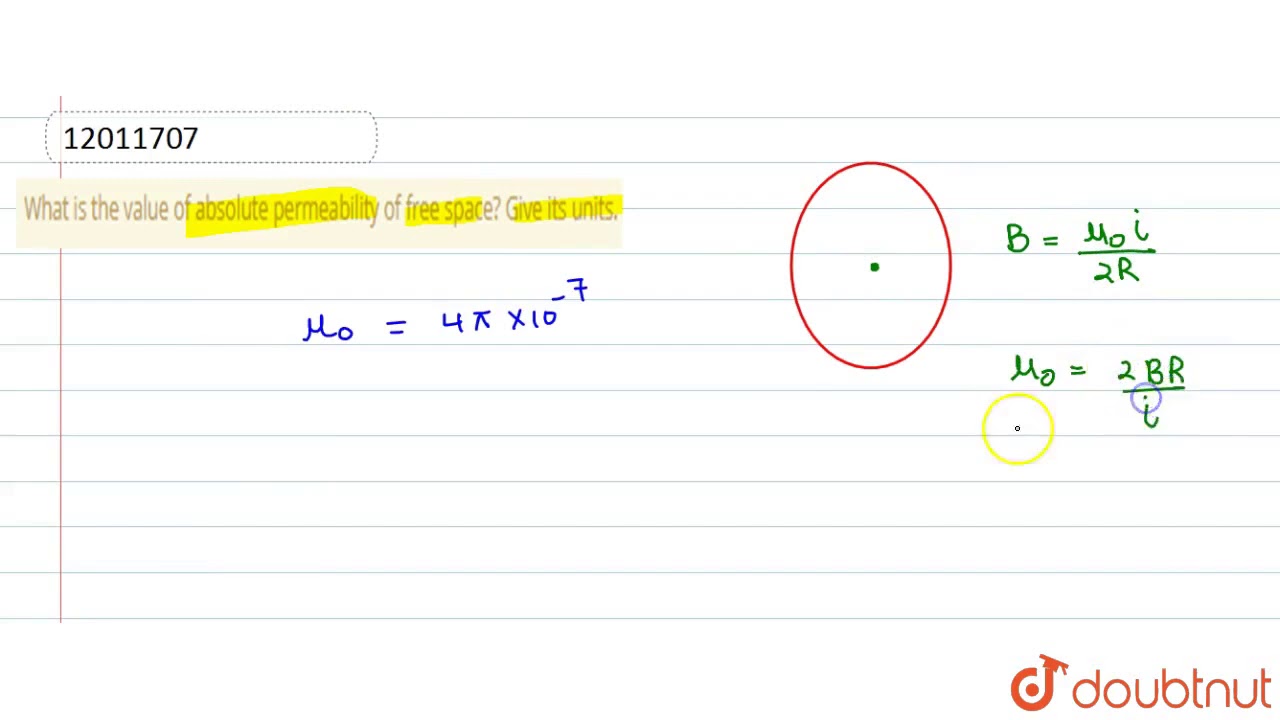 12011707
What is the value of absolute permeability of free space? Give its units.
μ₀ = 4π × 10⁻⁷
B = μ₀ i / 2R
μ₀ = 2BR / i
doubtnut